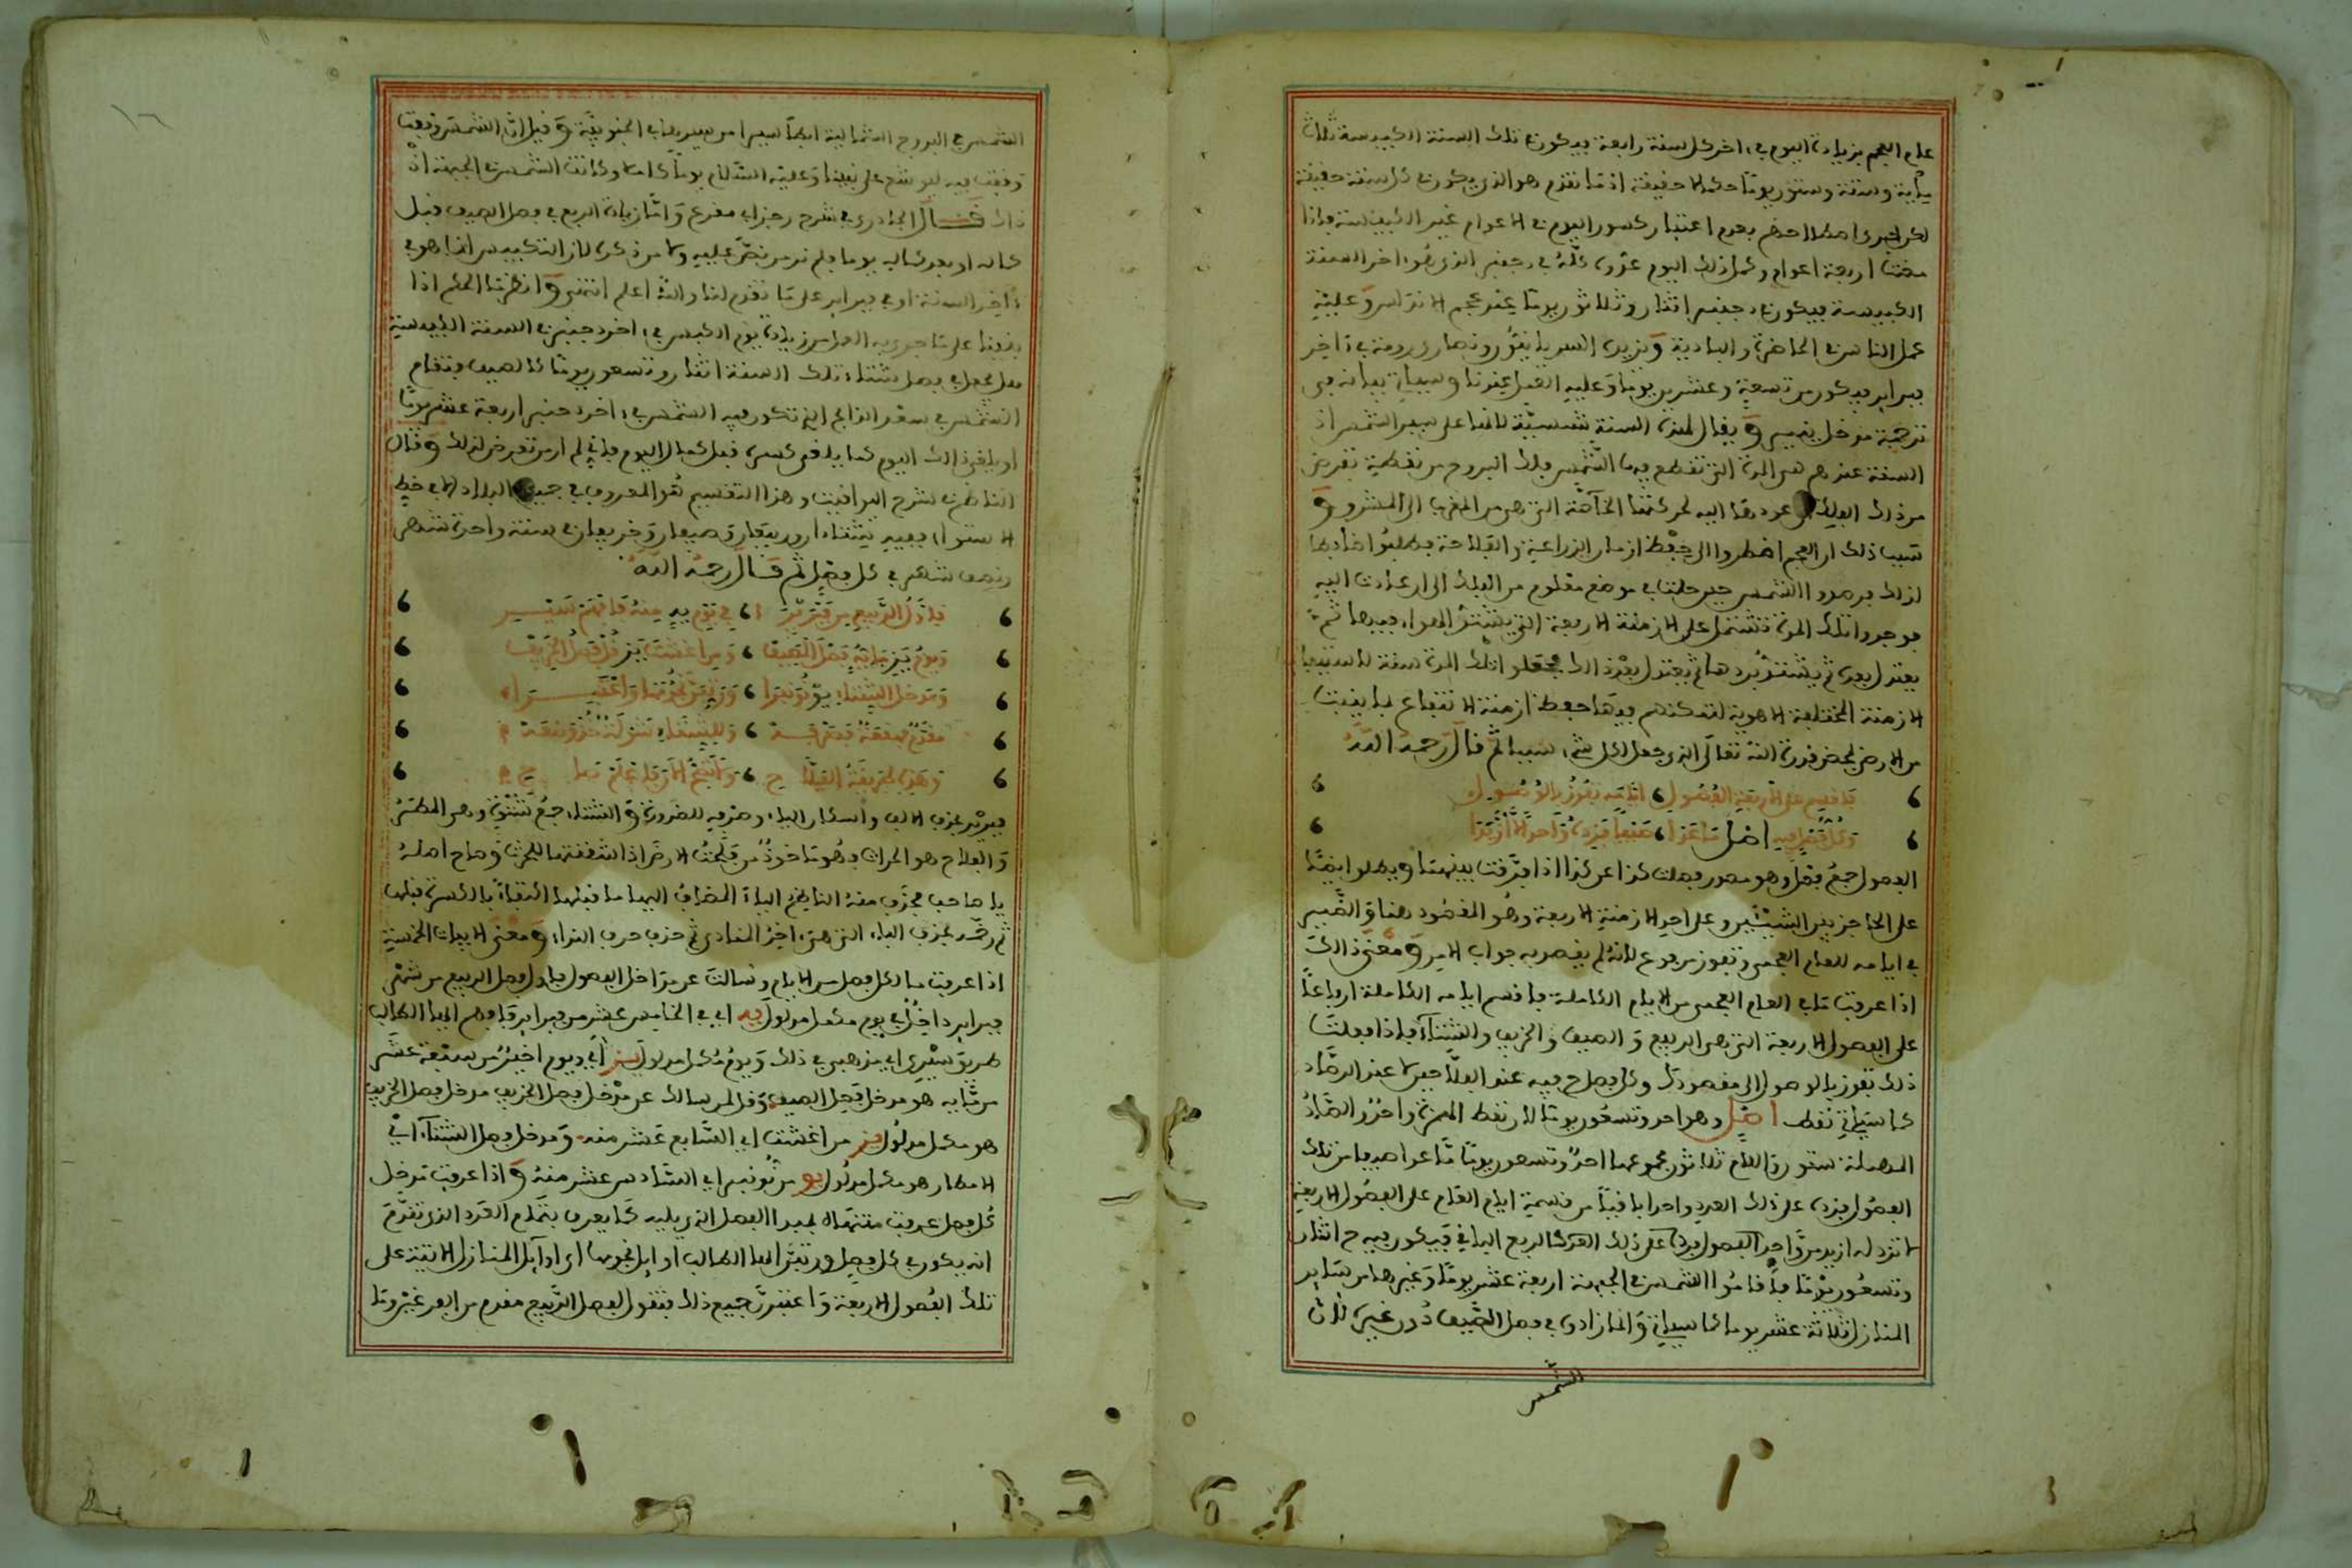 عام العجم بزيادة اليوم في ءاخر كل سنة رابعة فيكون في تلك السنة الكبيسة ثلاث
مائة وستة وستون يوما حكما لا حقيقة اذ ما تقدم هو الذي يكون في كل سنة حقيقة
لكن جرى اصطلاحهم بعدم اعتبار كسور اليوم في الاعوام غير الكبيسة فاذا
مضت اربعة اعوام وكمل ذلك اليوم عدوه كله في دجنبر الذي هو ءاخر السنة
الكبيسة فيكون دجنبر اثنان وثلاثون يوما عند عجم الاندلس وعليه
عمل الناس في الحاضرة والبادية ويزيده السريانيون ونصارى رومة في ءاخر
فبراير فيكون من تسعة وعشرين يوما وعليه العمل عندنا وسيأتي بيانه في
ترجمة مدخل ينير ويقال لهذه السنة شمسية لانها على سير الشمس اذ
السنة عندهم هي المدة التي تقطع فيها الشمس فلك البروج من نقطة تفرض
من ذلك الفلك عودتها اليه لحركتها الخاصة التي هي من المغرب الى المشرق و
سبب ذلك ان العجم اضطروا الى حفظ ازمان الزراعة والفلاحة فطلبوا ضابطا
لذلك فرصدوا الشمس حين حلت في موضع معلوم من الفلك الى ان عادت اليه
فوجدوا تلك المدة تشتمل على الازمنة الاربعة التي يشتد الهواء فيها ثم
يعتدل بعده ثم يشتد بردها ثم يعتدل بعد ذلك فجعلوا تلك المدة سنة لاستيفا
الازمنة المختلفة الاهوية لتمكنهم فيها حفظ ازمنة الانتفاع بما ينبت
من الارض لمحض قدرة الله تعالى الذي جعل لكل شيء سببا ثم قال رحمه الله
فاقسم على اربعة الفصول ايامه تفوز بالوصول
وكل فصل فيه اصل ما عدا صيفا فزده واحدا
الفصول جمع فصل وهو مصدر فصلت كذا عن كذا اذا فرقت بينهما ويطلق ايضا
على الحاجز بين الشيئين وعلى احد الازمنة الاربعة وهو المقصود هنا والضمير
في ايامه للعام العجمي وتفوز مرفوع لانه لم يقصد به جواب الامر ومعنى ذلك
اذا عرفت ما في العام العجمي من الايام الكاملة فاقسم ايامه الكاملة ارباعا
على الفصول الاربعة التي هي الربيع والصيف والخريف والشتاء فاذا فعلت
ذلك تفوز بالوصول الى مقصودك وكل فصل فيه عند الفلاحين لا عند الرصاد
كما سيأتي نقط اصل وهو احد وتسعون يوما لان نقط الهمزة واحد والصاد
المهملة ستون واللام ثلاثون مجموعها احد وتسعون يوما ما عدا صيفا من تلك
الفصول فزده على ذلك العدد واحدا باقيا من قسمة ايام العام على الفصول الاربعة
وتسعون يوما فاقاموا الشمس في الجبهة اربعة عشر يوما وغيرها من سائر
المنازل ثلاثة عشر يوما كما سيأتي وانما زادوه في فصل الصيف دون غيره لان
الشمس
١٦
الشمس في البروج الشمالية ابطأ سيرا من سيرها في الجنوبية وقيل ان الشمس وقفت
وقفت فيه ليوشع على نبينا وعليه السلام يوما كاملا وكانت الشمس في الجبهة اذ
ذاك قال الجادري في شرح رجز ابي مقرع واما زيادة الربع في فصل الصيف قبل
كماله او بعد كماله يوما فلم نر من نص عليه ولا من ذكره لان التكبيس انما هو في
ءاخر السنة او في فبراير على ما تقدم لنا والله اعلم انتهى وانظر ما الحكم اذا
بنينا على ما جرى به العمل من زيادة يوم الكبس في ءاخر دجنبر في السنة الكبيسة
هل نجعل في فصل شتاء تلك السنة اثنان وتسعون يوما كالصيف وتقام
الشمس في سعد الذابح التي تكون فيه الشمس في ءاخر دجنبر اربعة عشر يوما
او يلغى ذلك اليوم كما يلغى كسره قبل كمال اليوم فاني لم ار من تعرض لذلك وقال
الناظم في شرح اليواقيت وهذا التقسيم هو المعروف في جميع البلاد الا في خط
الاستواء ففيه شتاءان وربيعان وصيفان وخريفان في سنة واحدة شهر
ونصف شهر في كل فصل ثم قال رحمه الله
فاول الربيع من فبرير في يوم يه منه فافهم سيرى
ويوم يز مايه فصل الصيف ومن اغشت يز قل فصل الخريف
ومدخل الشتاء يو نونبرا
وهذه طريقة الفلاح
فبرير بحذف الالف واسكان الياء وصرفه للضرورة والشتاء جمع شتوة وهو المطر
والفلاح هو الحراث وهو ماخوذ من فلحت الارض اذا شققتها للحرث وصاح اصله
يا صاحب فحذف منه الناظم الياء المضاف اليها ما قبلها اكتفاء بالكسرة قبلها
ثم رخمه بحذف الباء التي هي ءاخر المنادى ثم حذف حرف النداء ومعنى الابيات الخمسة
اذا عرفت ما لكل فصل من الايام وسالت عن مداخل الفصول فاول فصل الربيع من شهر
فبراير داخل في يوم مكمل مدلول يه اي في الخامس عشر من فبراير فافهم ايها الطالب
طريق سيري اي مذهبي في ذلك ويوم مكمل مدلول يز اي ويوم اخير من سبعة عشر
من مايه هو مدخل فصل الصيف وقل لمن سالك عن مدخل فصل الخريف مدخل فصل الخريف
هو مكمل مدلول يز من اغشت اي السابع عشر منه ومدخل فصل الشتاء اي
الامطار هو مكمل مدلول يو من نونبر اي السادس عشر منه واذا عرفت مدخل
كل فصل عرفت منتهاه لمبدا الفصل الذي يليه كما يعرف بتمام العدد الذي تقدم
انه يكون في كل فصل ورتب ايها الطالب اوائل نجومها اي اوائل المنازل الاتية على
تلك الفصول الاربعة واعتبر جميع ذلك فتقول لفصل الربيع